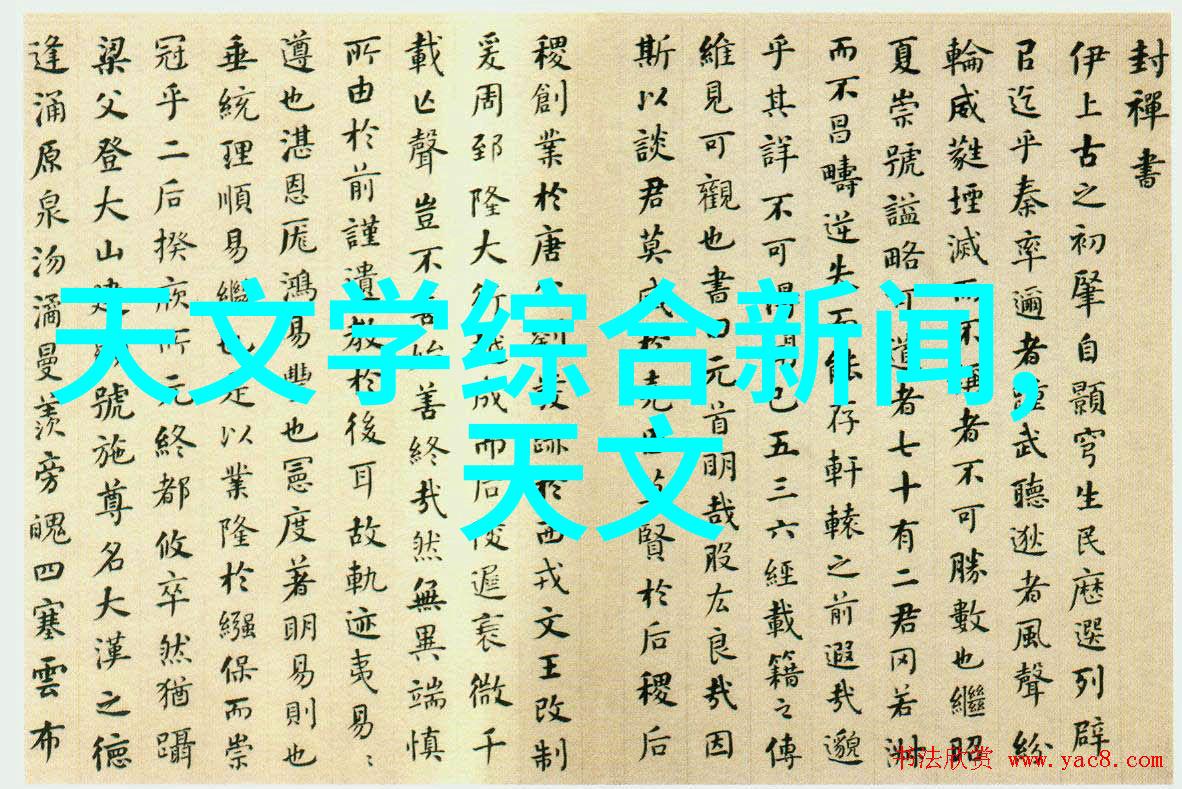 封禪書
伊上古之初肇自顥穹生民歷選列辟
以迄乎秦率邇者踵武聽逖者風聲紛
輪威蕤堙滅而不稱者不可勝數也繼昭
夏崇號謚略可道者七十有二君罔若淑
而不昌疇逆失而能存軒轅之前遐哉邈
乎其詳不可得聞已五三六經載籍之傳
維見可觀也書曰元首明哉股厷良哉因
斯以談君莫於賢於后稷后
稷創業於唐於西戎文王改制
爰周郅隆大行越成而后陵遲衰微千
載亡聲豈不善始善終哉然無異端慎
所由於前謹遺教於後耳故軌迹夷易〻
遵也湛恩厖鴻易豐也憲度著明易則也
垂統理順易繼也是以業隆於繈保而崇
冠乎二后揆厥所元終都攸卒然猶躡
梁父登大山建號施尊名大漢之德
逢涌原泉沕潏曼羨旁魄四塞雲布
天文学综合新闻,
天文
书法欣赏 www.yac8.com